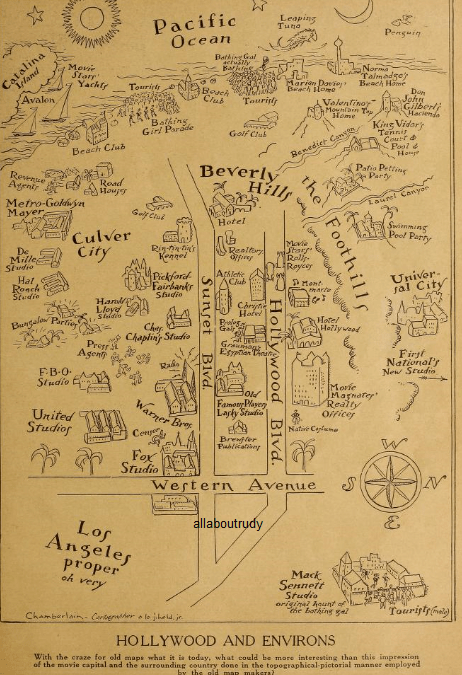 Pacific
Ocean
Leaping
Tuna
Penguin
Catalina
Island
Avalon
Movie
Stars'
Yachts
Bathing Gal
actually
Bathing
Tourists
Beach
Club
Tourists
Marion Davies'
Beach Home
Norma
Talmadge's
Beach Home
Bathing
Girl Parade
Golf Club
Valentino's
Mountain Top
Home
Don
John
Gilbert's
Hacienda
Beach Club
King Vidor's
Tennis
Court &
Pool &
House
Benedict Canyon
Revenue
Agents
Road
Houses
Beverly
Hills
Patio Petting
Party
Laurel Canyon
Metro-Goldwyn
Mayer
Golf Club
Hotel
the
Foothills
Swimming
Pool Party
Culver
City
Rin-tin-tin's
Kennel
De
Mille
Studio
Realtors
Offices
Movie
Stars
Rolls-
Royces
Hal
Roach
Studio
Pickford-
Fairbanks
Studio
Athletic
Club
Univer-
sal City
Harold
Lloyd
Studio
Sunset Blvd
Christie
Hotel
Hollywood Blvd.
Bungalow Parties
Chas.
Chaplin Studio
Grauman's
Egyptian Theatre
Hotel
Hollywood
Press
Agents
First
National's
New Studio
F·B·O·
Studio
Radio
Old
Famous Players
Lasky Studio
Movie
Magnates'
Realty
Offices
Warner Bros.
United
Studios
Censors
Brewster
Publications
Native Costume
Fox
Studio
Western Avenue
W
S
N
E
allaboutrudy
Los
Angeles
proper
oh very
Mack
Sennett
Studio
original haunt of
the bathing gal
Tourists (male)
HOLLYWOOD AND ENVIRONS
With the craze for old maps what it is today, what could be more interesting than this impression
of the movie capital and the surrounding country done in the topographical-pictorial manner employed
by the old map makers?